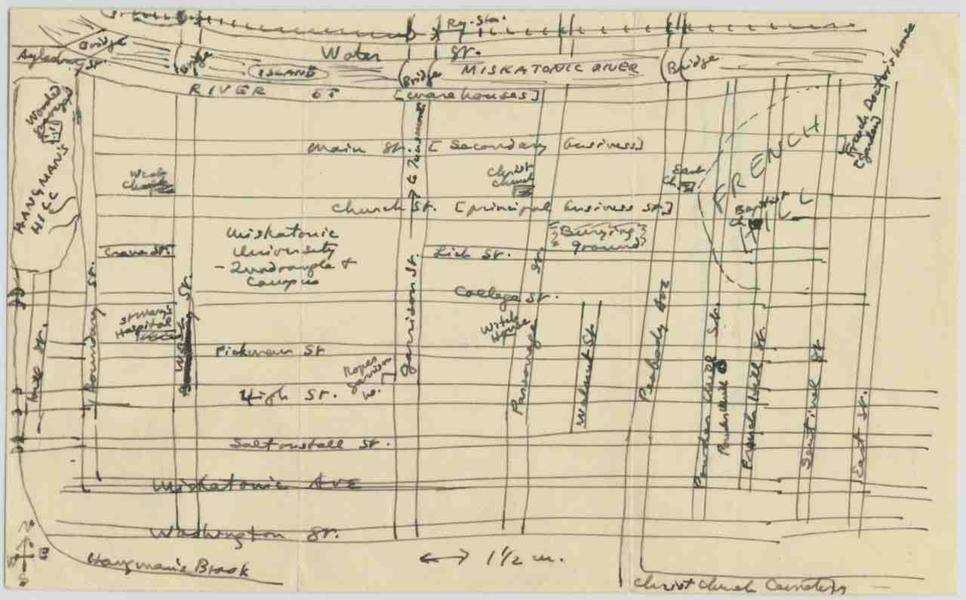 Ry. Sta.
Water St.
Aylesbury St.
Bridge
Bridge
ISLAND
Bridge
MISKATONIC RIVER
Bridge
RIVER ST
[warehouses]
French Doctor's house
(Garden)
Wooded
Graveyard
HANGMAN'S
HILL
Main St. [Secondary business]
FRENCH
HILL
West
Church
Christ
Church
East
Ch.
Baptist
Ch.
Church St. [principal business St.]
Miskatonic
University
- Quadrangle &
Campus
Burying
ground
Crane St.
Lich St.
College St.
St Mary's
Hospital
Witch
House
Pickman St
High St.
Saltonstall St.
Miskatonic Ave
Washington St.
Boundary St.
West St.
Garrison St.
Parsonage St.
Walnut St
Peabody Ave
Powder Mill St.
Powder Mill
French Hill St.
Sentinel St
East St.
Hangman's Brook
1 1/2 m.
Christ Church Cemetery